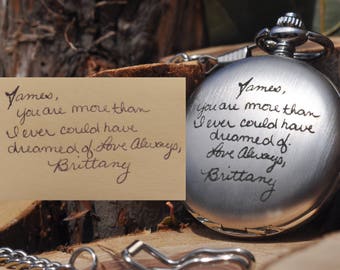 James,
you are more than
I ever could have
dreamed of. Love Always,
Brittany
James,
you are more than
I ever could have
dreamed of.
Love Always,
Brittany